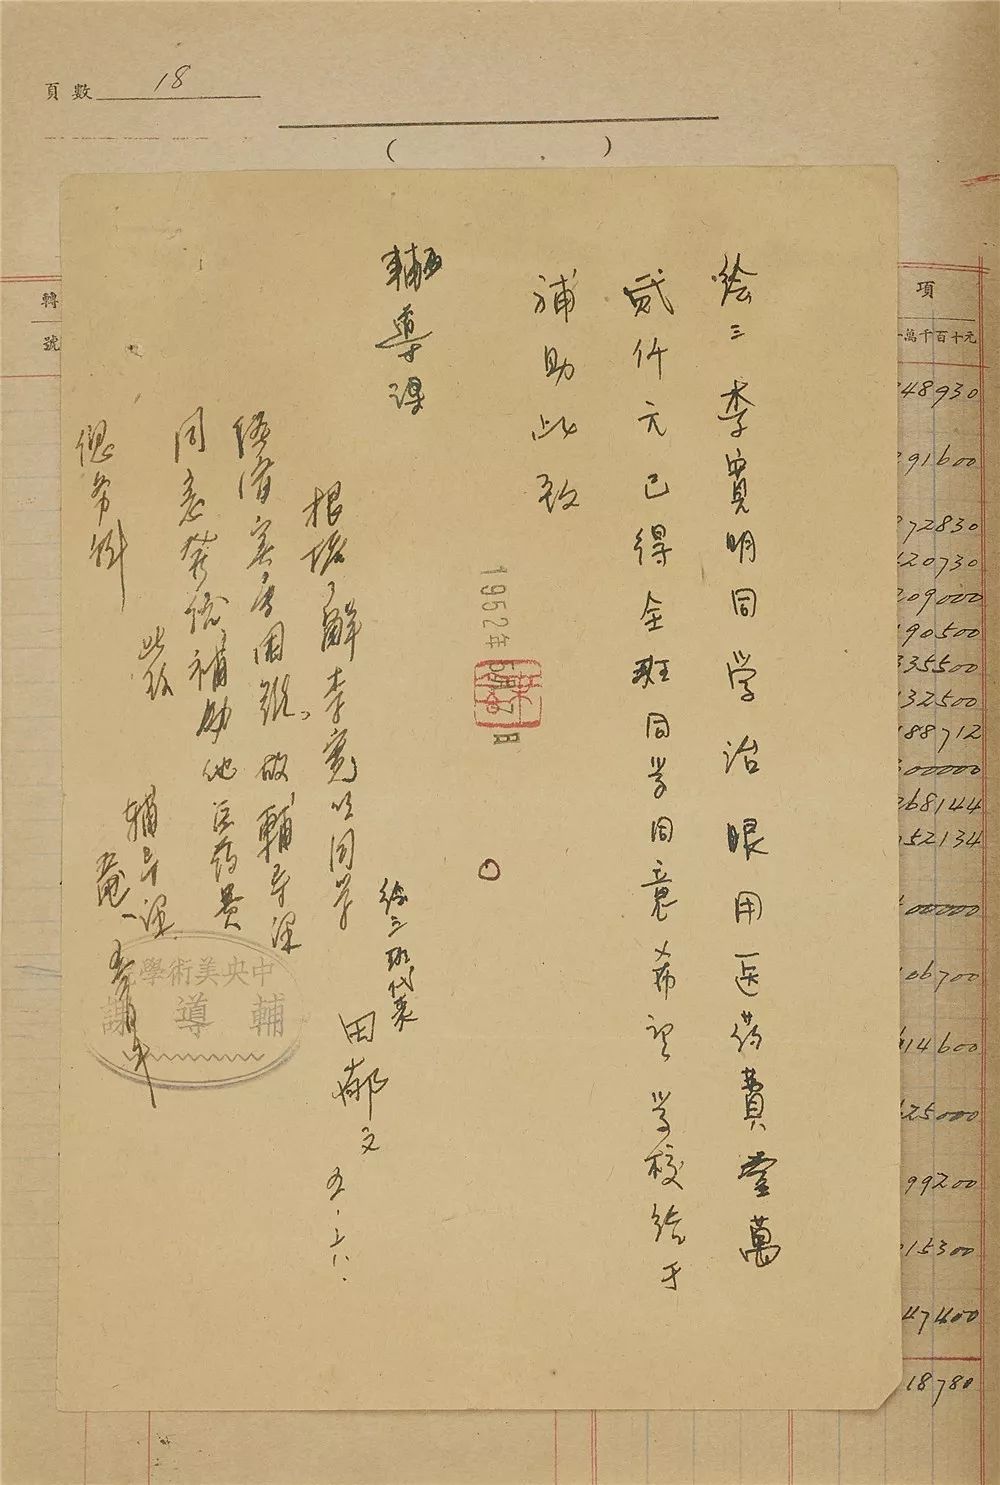 頁數 18
( )
項
萬千百十元
轉
號
48930
91600
72830
20730
209000
90500
335500
132500
188712
00000
268144
52134
00000
06700
14600
25000
99200
15300
47400
18780
绘三 李寬明同学治眼用医药費壹萬
貳仟元已得全班同学同意希望学校给于
補助此致
輔導課
1952年5月7日
绘三班代表
田郁文 五.六.
根据了解李寬明同学
经济实有困难,故輔导课
同意 補助他医药费
此致
总务科
辅导课
中央美術學院
輔導課